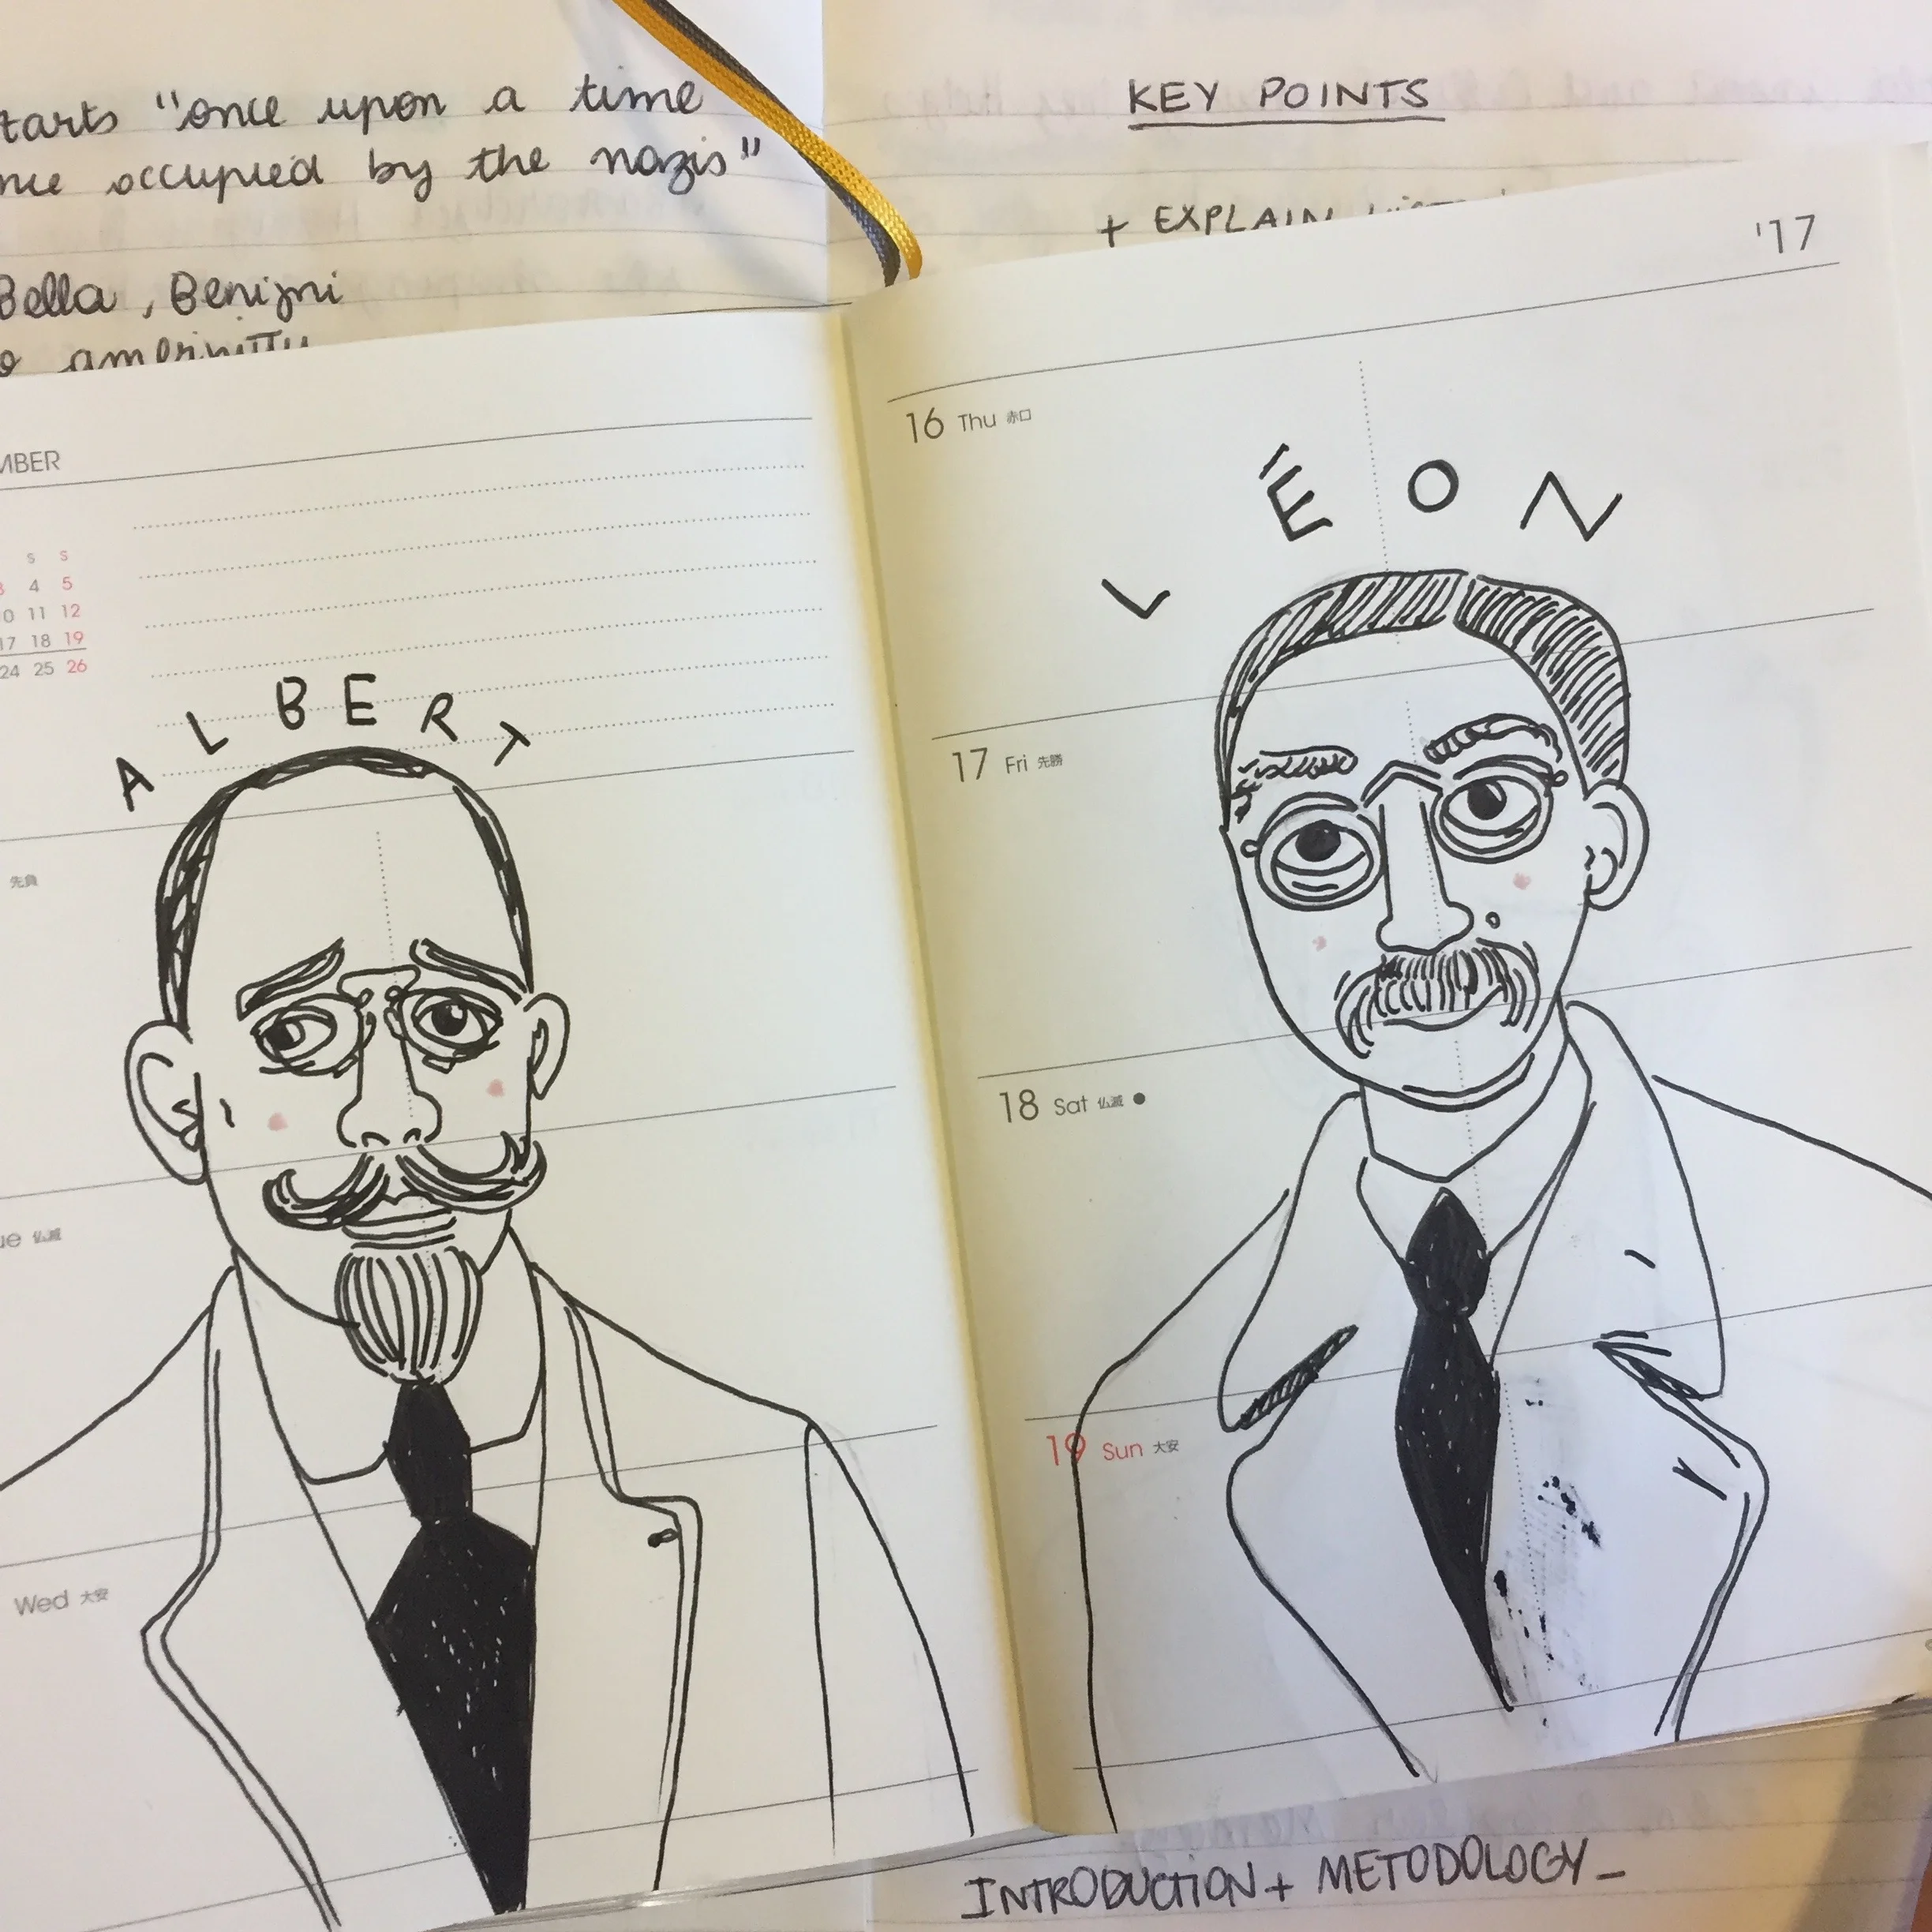 tarts "once upon a time
nce occupied by the nazis"
Bella, Benigni
KEY POINTS
+ EXPLAIN
MBER
S S
3 4 5
10 11 12
17 18 19
24 25 26
ALBERT
先負
ue 仏滅
Wed 大安
'17
16 Thu 赤口
LÉON
17 Fri 先勝
18 Sat 仏滅 ●
19 Sun 大安
INTRODUCTION + METODOLOGY -